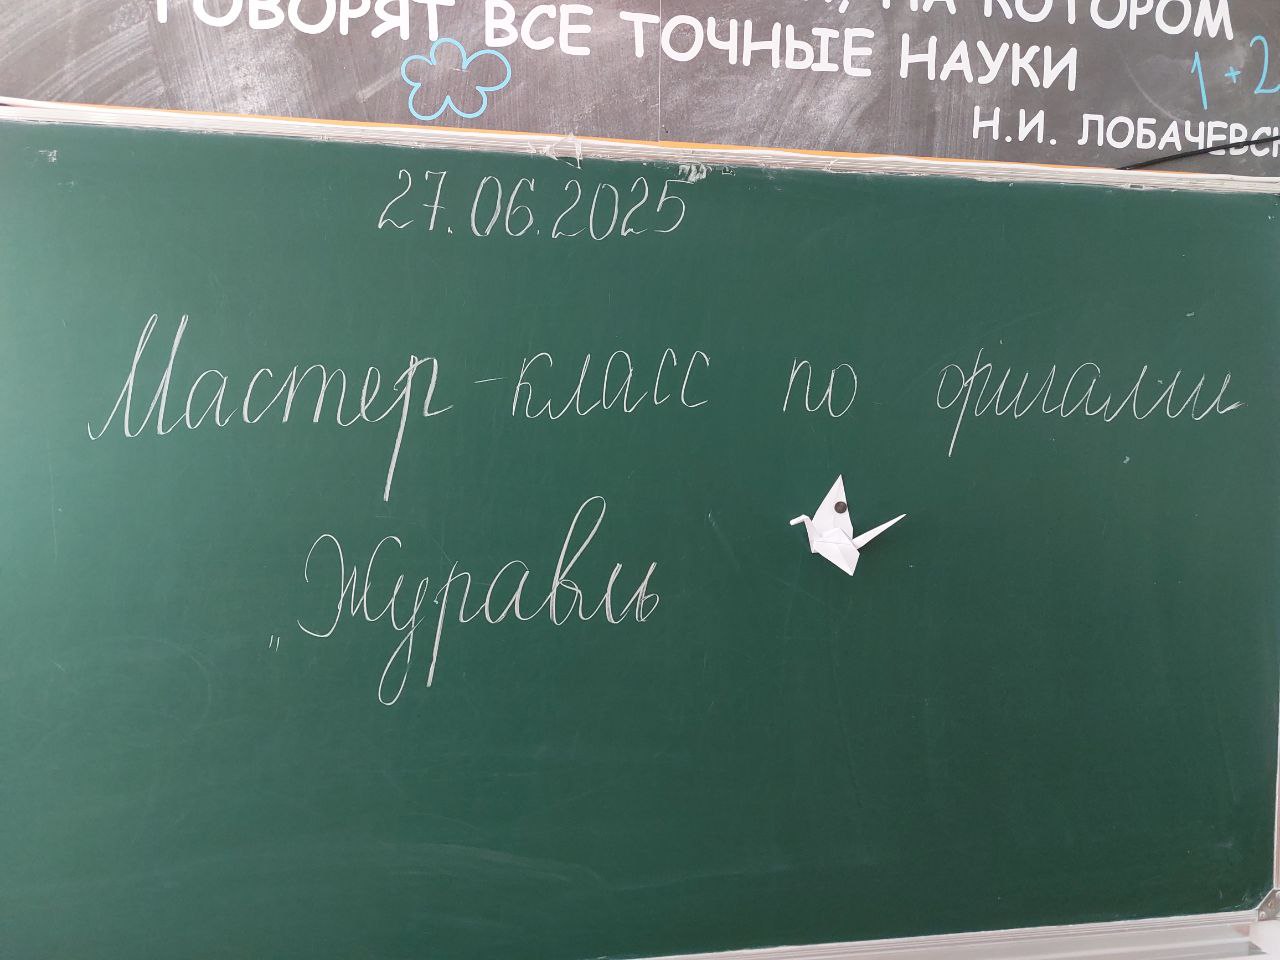 НА КОТОРОМ
ГОВОРЯТ ВСЕ ТОЧНЫЕ НАУКИ
1+2
Н.И. ЛОБАЧЕВСК
27.06.2025
Мастер-класс по оригами
„Журавль